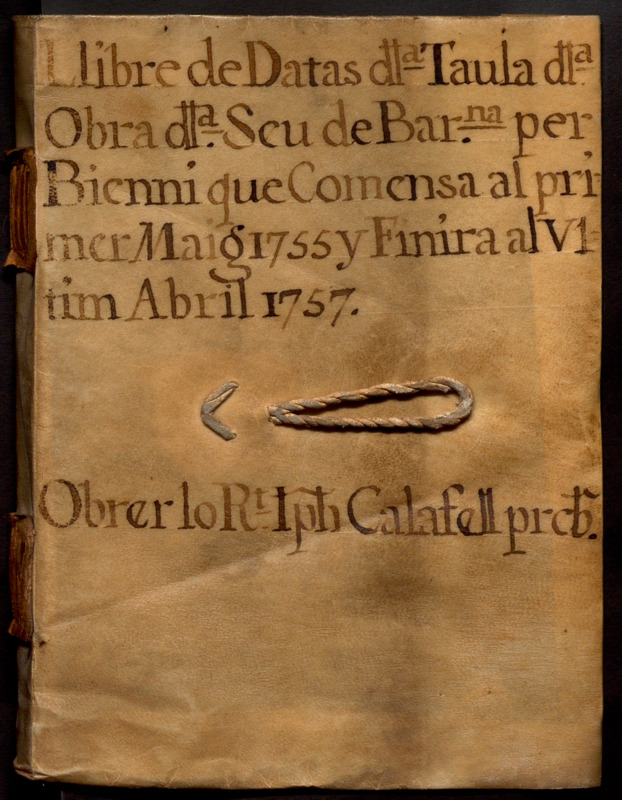 Llibre de Datas dlla. Taula dlla.
Obra dlla. Seu de Bar.na per
Bienni que Comensa al pri-
mer Maig 1755 y Finira al Vl-
tim Abril 1757.
Obrer lo Rt. Iph Calafell preb.